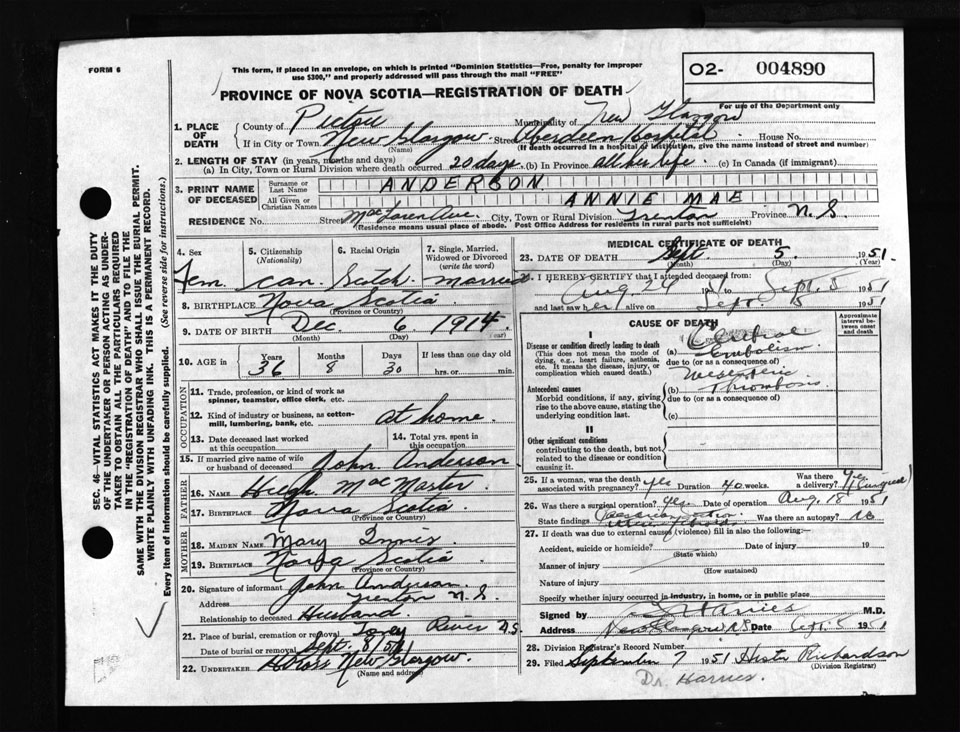 FORM 6
This form, if placed in an envelope, on which is printed "Dominion Statistics—Free, penalty for improper
use $300," and properly addressed will pass through the mail "FREE"
O2- 004890
PROVINCE OF NOVA SCOTIA—REGISTRATION OF DEATH
For use of the Department only
1. PLACE OF DEATH County of Pictou Municipality of New Glasgow
If in City or Town New Glasgow Street Aberdeen Hospital House No.
(Name) (If death occurred in a hospital or institution, give the name instead of street and number)
2. LENGTH OF STAY (in years, months and days)
(a) In City, Town or Rural Division where death occurred 20 days (b) In Province all her life (c) In Canada (if immigrant)
3. PRINT NAME OF DECEASED Surname or Last Name ANDERSON
All Given or Christian Names ANNIE MAE
RESIDENCE No. Street MacLaren Ave. City, Town or Rural Division Trenton Province N.S.
(Residence means usual place of abode. Post Office Address for residents in rural parts not sufficient)
4. Sex Fem.
5. Citizenship (Nationality) Can.
6. Racial Origin Scotch
7. Single, Married, Widowed or Divorced (write the word) married
8. BIRTHPLACE Nova Scotia
(Province or Country)
9. DATE OF BIRTH Dec. 6 1914
(Month) (Day) (Year)
10. AGE in Years 36 Months 8 Days 30 If less than one day old hrs. or min.
OCCUPATION
11. Trade, profession, or kind of work as spinner, teamster, office clerk, etc.
12. Kind of industry or business, as cotton-mill, lumbering, bank, etc. at home
13. Date deceased last worked at this occupation
14. Total yrs. spent in this occupation
15. If married give name of wife or husband of deceased John Anderson
FATHER
16. NAME Hugh MacMaster
17. BIRTHPLACE Nova Scotia
(Province or Country)
MOTHER
18. MAIDEN NAME Mary Innes
19. BIRTHPLACE Nova Scotia
(Province or Country)
20. Signature of informant John Anderson
Address Trenton N.S.
Relationship to deceased Husband
21. Place of burial, cremation or removal River N.S.
Date of burial or removal Sept. 8/51
22. UNDERTAKER New Glasgow
(Name and address)
MEDICAL CERTIFICATE OF DEATH
23. DATE OF DEATH Sept 5 1951
(Month) (Day) (Year)
I HEREBY CERTIFY that I attended deceased from
Aug. 24 1951 Sept. 5 1951
and last saw her alive on Sept. 5 1951
CAUSE OF DEATH
Approximate interval between onset and death
I
Disease or condition directly leading to death
(This does not mean the mode of dying, e.g., heart failure, asthenia, etc. It means the disease, injury, or complication which caused death.)
(a) Embolism
due to (or as consequence of)
Antecedent causes
Morbid conditions, if any, giving rise to the above cause, stating the underlying condition last.
(b) Mesenteric Thrombosis
due to (or as consequence of)
(c)
II
Other significant conditions
contributing to the death, but not related to the disease or condition causing it.
25. If a woman, was the death associated with pregnancy? yes Duration 40 weeks. Was there a delivery? yes
26. Was there a surgical operation? yes Date of operation Aug. 18 1951
State findings Was there an autopsy? no
27. If death was due to external causes (violence) fill in also the following:
Accident, suicide or homicide? Date of injury 19
(State which)
Manner of injury
(How sustained)
Nature of injury
Specify whether injury occurred in industry, in home, or in public place
Signed by Harries M.D.
Address New Glasgow N.S. Date Sept. 5 1951
28. Division Registrar's Record Number
29. Filed September 7 1951 Hester Richardson
(Division Registrar)
Dr. Harries.
SEC. 46—VITAL STATISTICS ACT MAKES IT THE DUTY
OF THE UNDERTAKER OR PERSON ACTING AS UNDER-
TAKER TO OBTAIN ALL THE PARTICULARS REQUIRED
IN THE "REGISTRATION OF DEATH" AND TO FILE THE
SAME WITH THE DIVISION REGISTRAR WHO SHALL ISSUE THE BURIAL PERMIT.
WRITE PLAINLY WITH UNFADING INK. THIS IS A PERMANENT RECORD.
Every item of information should be carefully supplied. (See reverse side for instructions.)